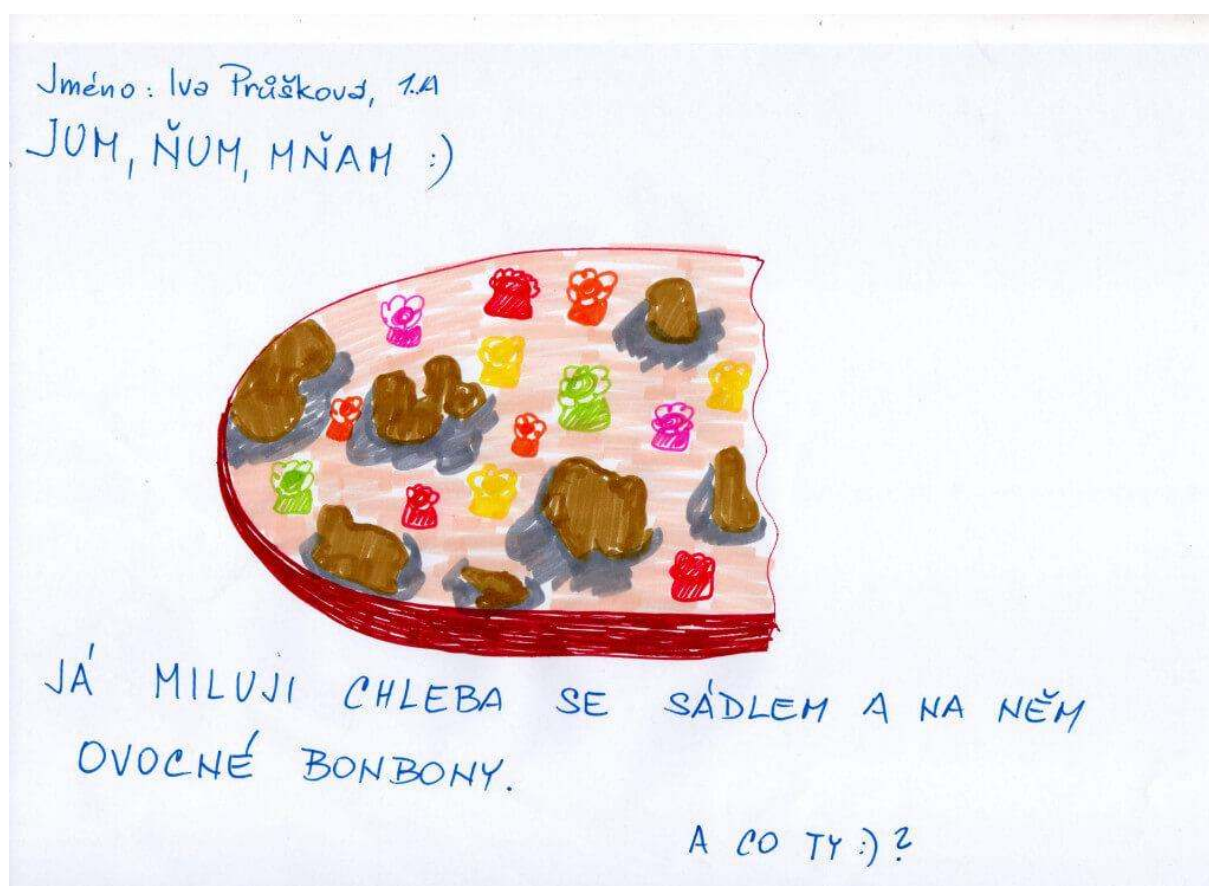 Jméno: Iva Průšková, 1.A
JUM, ŇUM, MŇAM :)
JÁ MILUJI CHLEBA SE SÁDLEM A NA NĚM
OVOCNÉ BONBONY.
A CO TY :)?